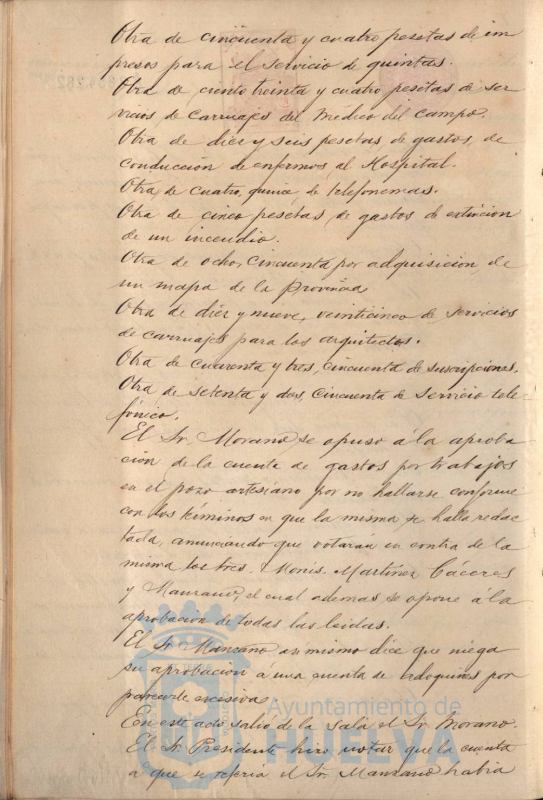 Otra de cincuenta y cuatro pesetas de im
presos para el servicio de quintas.
Otra de ciento treinta y cuatro pesetas de ser
vicios de carruajes del Médico del campo.
Otra de diez y seis pesetas de gastos, de
conducción de enfermos, al Hospital.
Otra de cuatro, quince de telefonemas.
Otra de cinco pesetas, de gastos de extincion
de un incendio.
Otra de ocho, cincuenta por adquisición, de
un mapa de la provincia
Otra de diez y nueve, veinticinco de servicios
de carruajes para los arquitectos.
Otra de cuarenta y tres, cincuenta de suscripciones.
Otra de setenta y dos, cincuenta de servicio tele
fónico.
El Sr. Morano, se opuso á la aproba
cion de la cuenta de gastos por trabajos
en el pozo artesiano por no hallarse conforme
con los términos en que la misma se halla redac
tada, anunciando que votarán en contra de la
misma los Sres. Monis, Martinez Cáceres
y Manzano, el cual ademas se opone á la
aprobacion de todas las leidas.
El Sr. Manzano asi mismo dice que niega
su aprobacion á una cuenta de adoquines por
parecerle excisiva
En este acto salió de la sala el Sr. Morano.
El Sr. Presidente hizo notar que la cuenta
a que se referia el Sr. Manzano habia
Ayuntamiento de
HUELVA